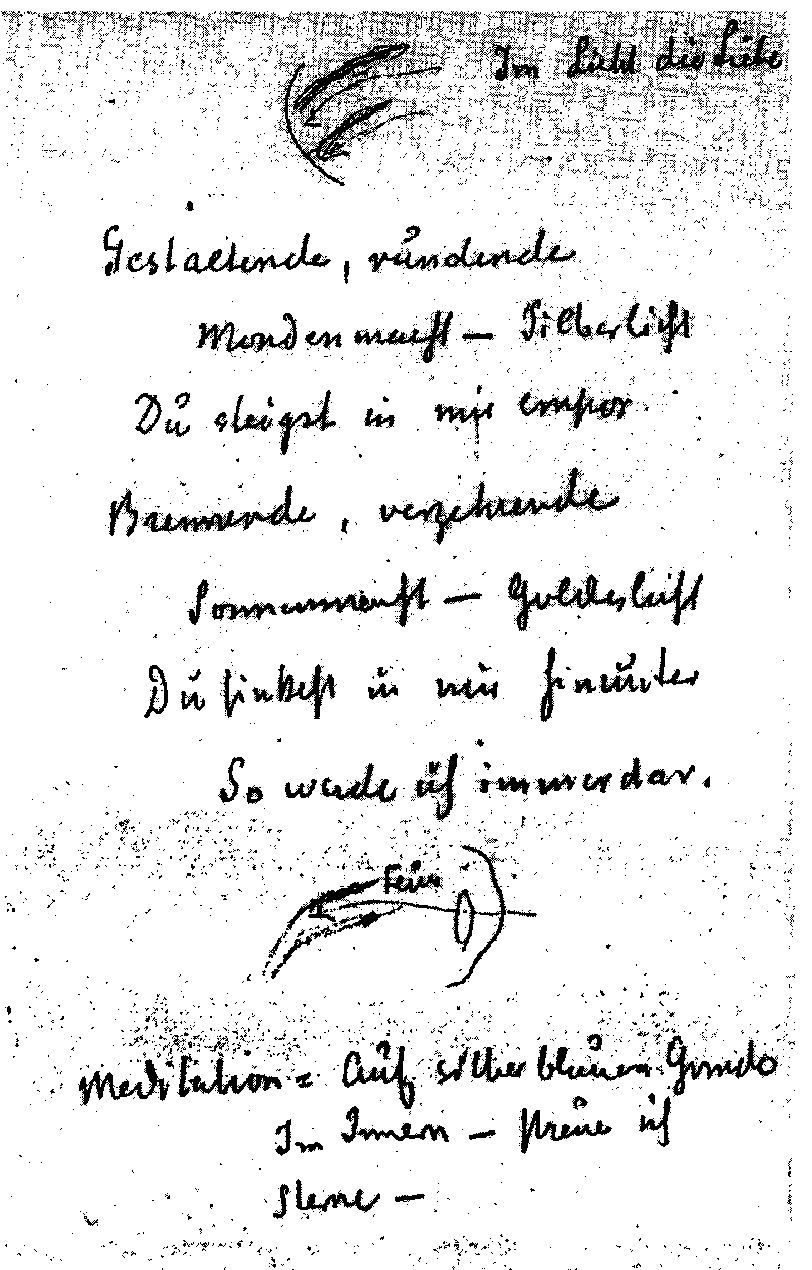 Im Licht die Liebe
Gestaltende, rundende
Mondenmacht – Silberlicht
Du steigst in mir empor
Brennende, verzehrende
Sonnenmacht – Goldeslicht
Du sinkest in mir hinunter
So werde ich immerdar.
Feuer
Meditation = Auf silberblauem Grunde
Im Innern – streue ich
Sterne –